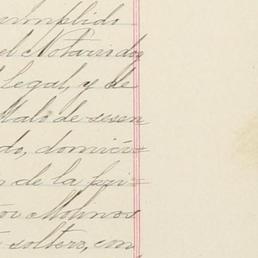 cumplido
el Notariado
legal, y de
talo de sesen
do, domici=
de la pri=
Molinos
soltero, con